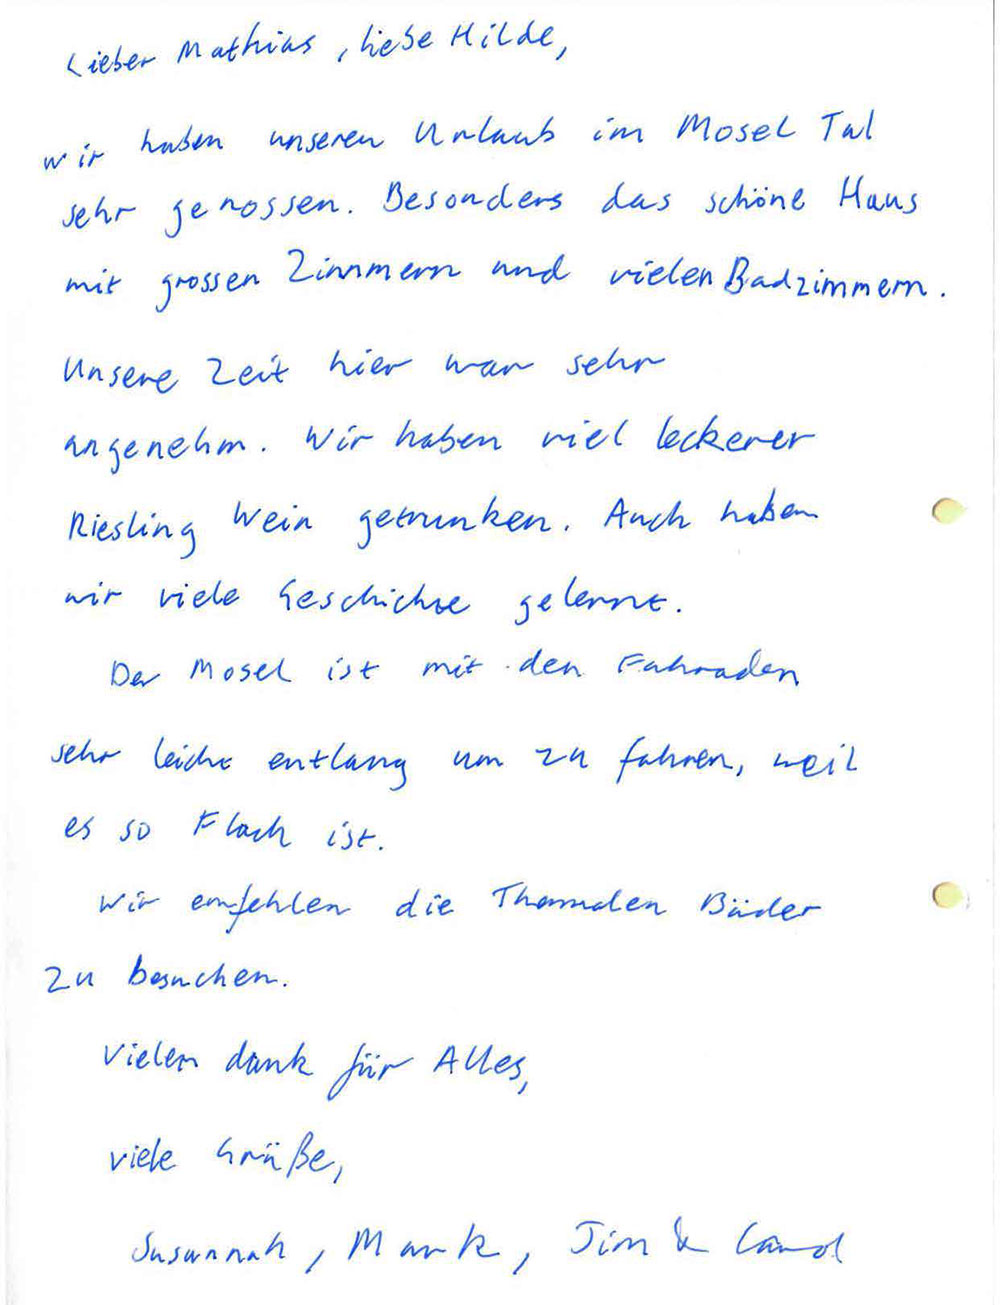 Lieber Mathias, liebe Hilde,
wir haben unseren Urlaub im Mosel Tal
sehr genossen. Besonders das schöne Haus
mit grossen Zimmern und vielen Badzimmern.
Unsere Zeit hier war sehr
angenehm. Wir haben viel leckerer
Riesling Wein getrunken. Auch haben
wir viele Geschichte gelernt.
Der Mosel ist mit den Fahraden
sehr leicht entlang um zu fahren, weil
es so Flach ist.
Wir emfehlen die Thermalen Bäder
zu besuchen.
Vielen dank für Alles,
viele Grüße,
Susannah, Mark, Jim & Carol